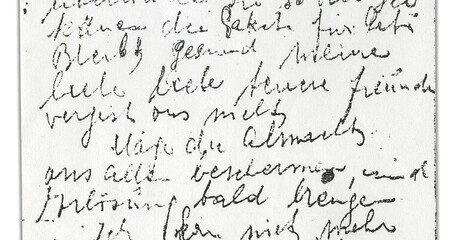 können die Pakete für letz
Bleibt gesund meine
liebe liebe teuere freunde
vergist ons nicht
Möge die Almacht
ons alle beschermen, und
Erlösung bald brengen
ich kan nicht mehr